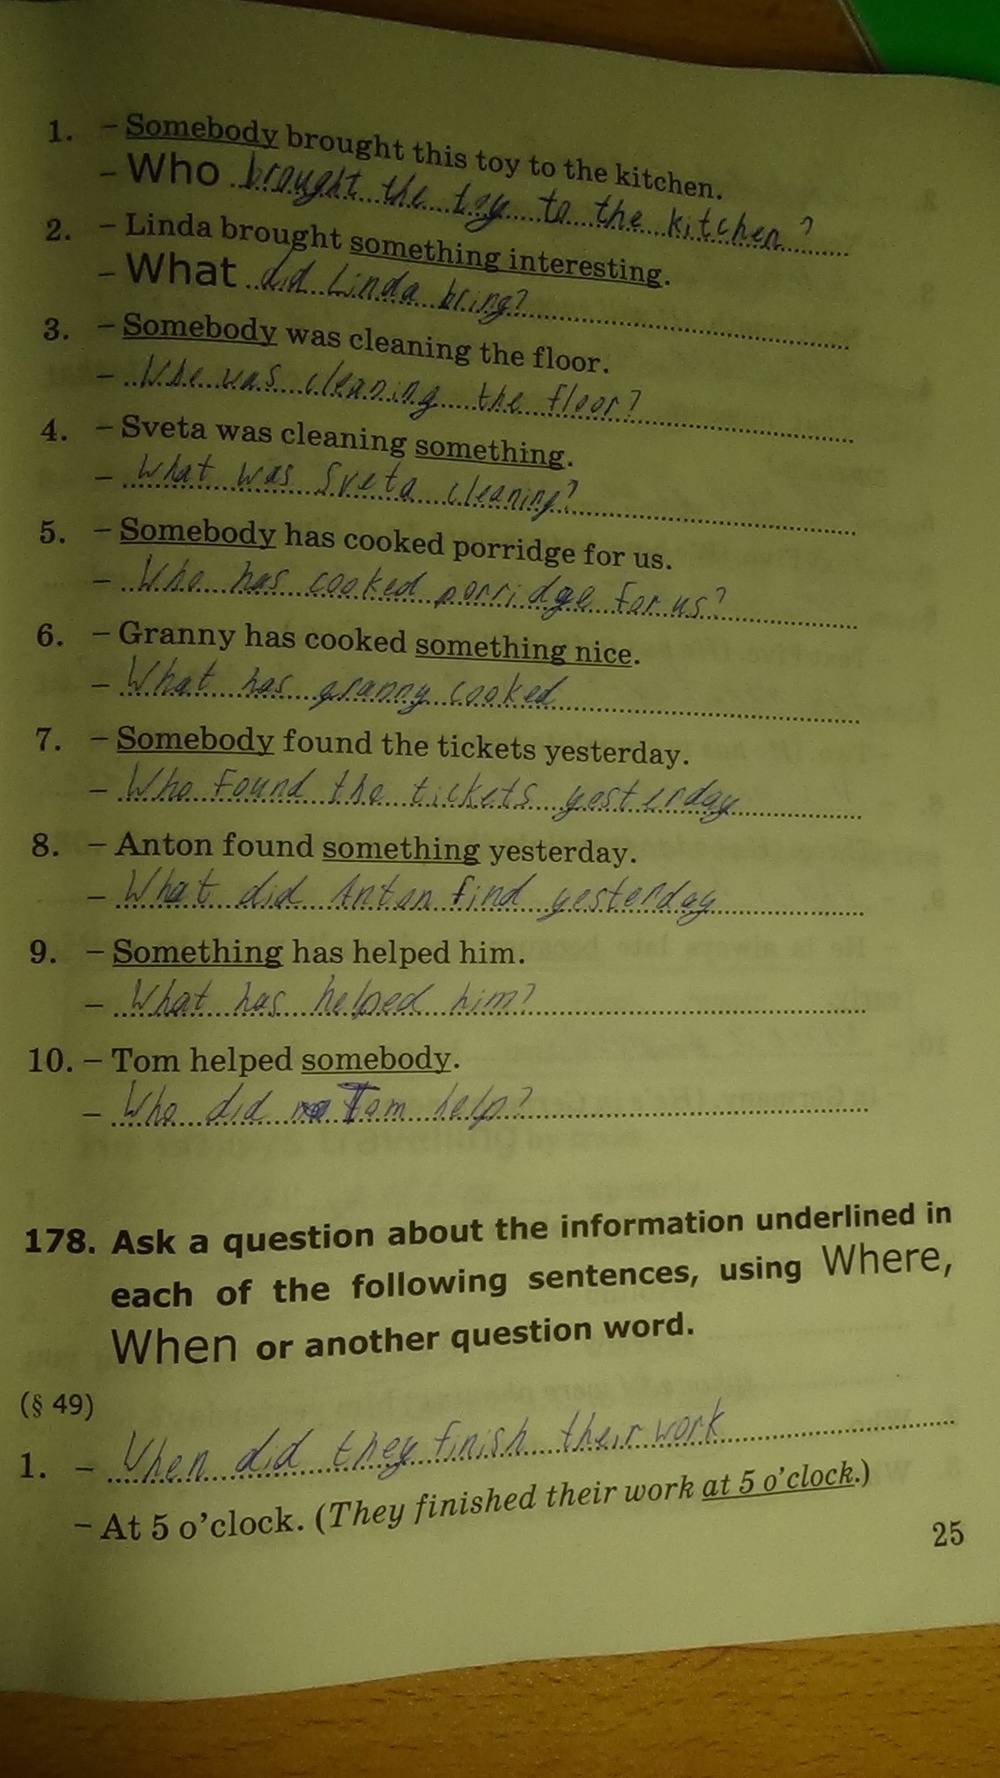 1. – Somebody brought this toy to the kitchen.
– Who brought the toy to the kitchen?
2. – Linda brought something interesting.
– What did Linda bring?
3. – Somebody was cleaning the floor.
– Who was cleaning the floor?
4. – Sveta was cleaning something.
– What was Sveta cleaning?
5. – Somebody has cooked porridge for us.
– Who has cooked porridge for us?
6. – Granny has cooked something nice.
– What has granny cooked
7. – Somebody found the tickets yesterday.
– Who found the tickets yesterday
8. – Anton found something yesterday.
– What did Anton find yesterday
9. – Something has helped him.
– What has helped him?
10. – Tom helped somebody.
– Who did Tom help?
178. Ask a question about the information underlined in
each of the following sentences, using Where,
When or another question word.
(§ 49)
1. – When did they finish their work
– At 5 o'clock. (They finished their work at 5 o'clock.)
25